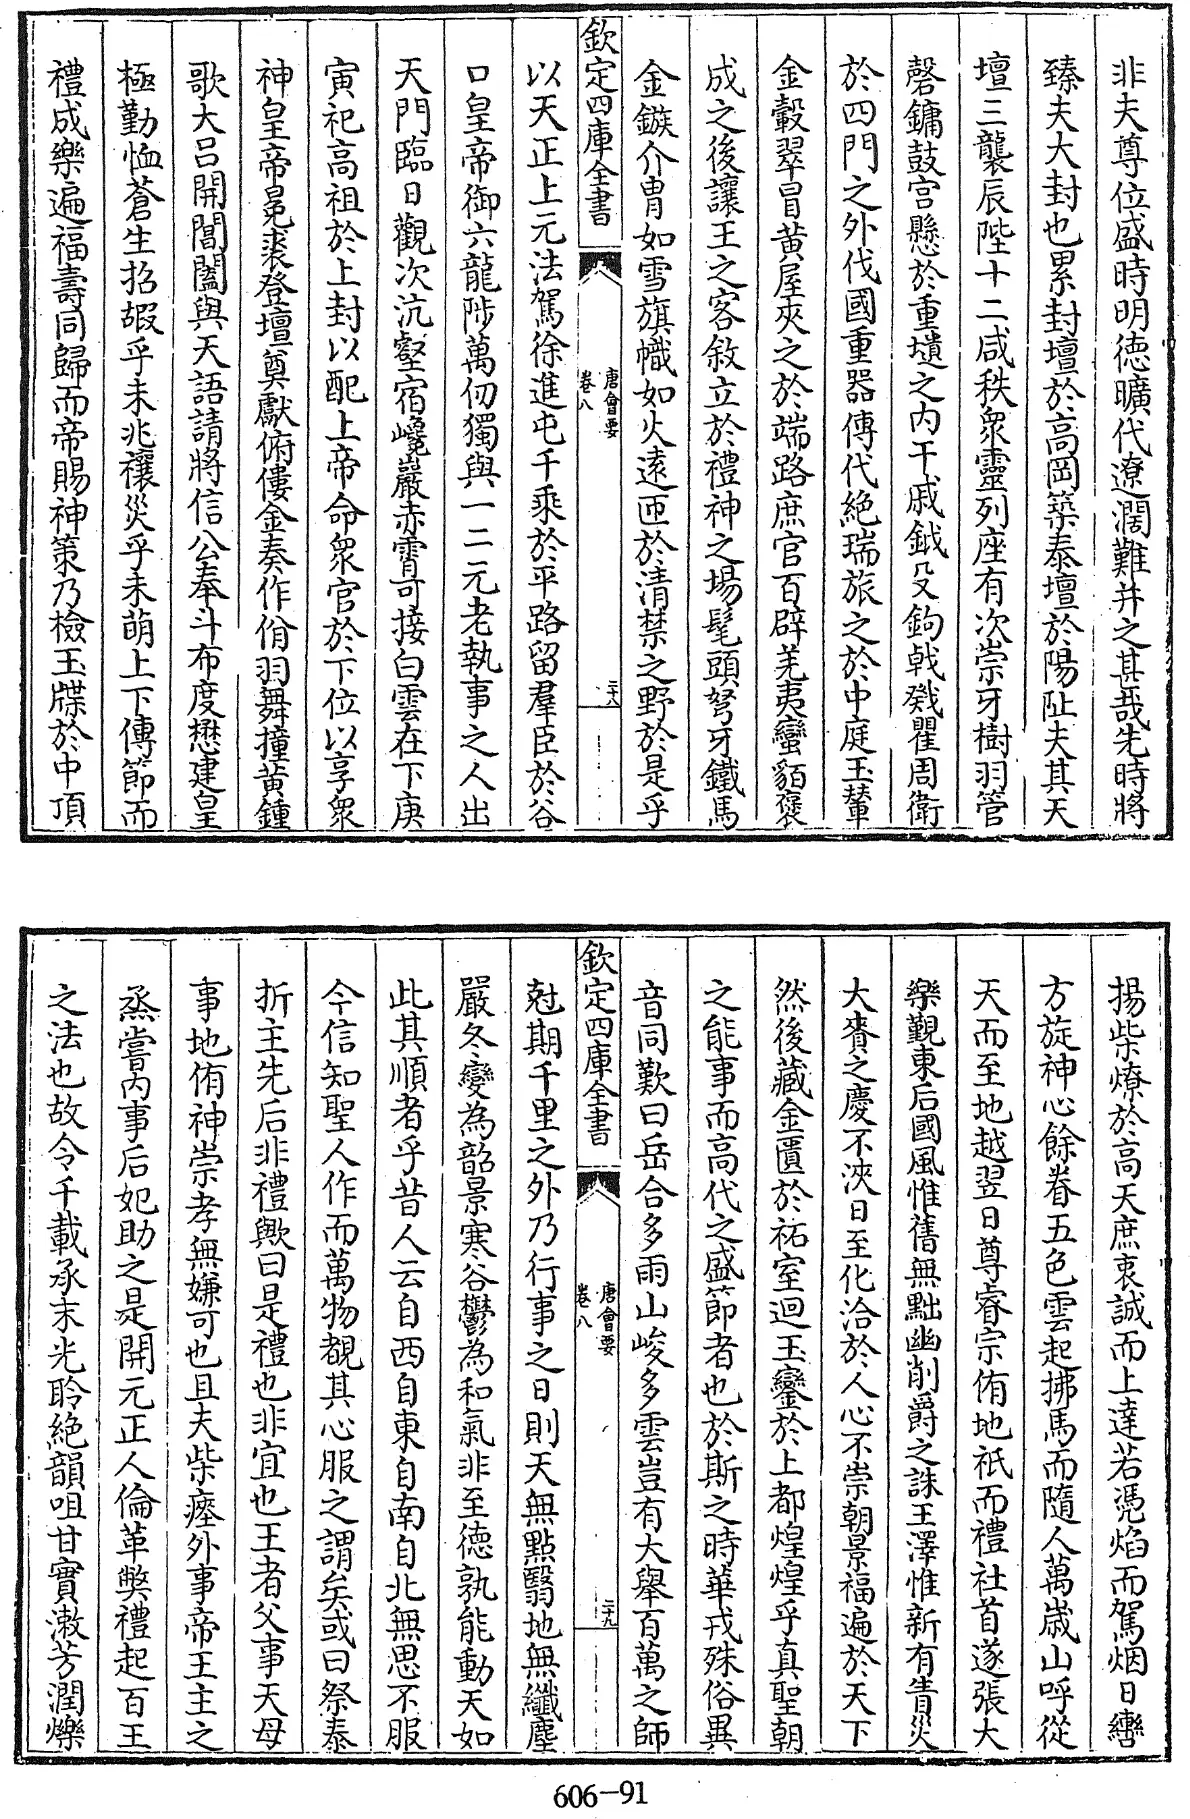 非夫尊位盛時明徳曠代遼濶難并之甚哉先時將
臻夫大封也累封壇於高岡築泰壇於陽阯夫其天
壇三襲辰陛十二咸秩衆靈列座有次崇牙樹羽管
磬鏞鼓宫懸於重壝之内干戚鉞殳鉤戟戣瞿周衛
於四門之外伐國重器傳代絶瑞旅之於中庭玉輦
金轂翠冒黄屋夾之於端路庶官百辟羌夷蠻貊褒
成之後讓王之客敘立於禮神之場髦頭弩牙鐵馬
金鏃介胄如雪旗幟如火遠匝於清禁之野於是乎
欽定四庫全書
唐會要
卷八
二十八
以天正上元法駕徐進屯千乘於平路留羣臣於谷
口皇帝御六龍陟萬仞獨與一二元老執事之人出
天門臨日觀次沆壑宿巉巖赤霄可接白雲在下庚
寅祀高祖於上封以配上帝命衆官於下位以享衆
神皇帝冕裘登壇奠獻俯僂金奏作佾羽舞撞黄鍾
歌大吕開閶闔與天語請將信公奉斗布度懋建皇
極勤恤蒼生招嘏乎未兆禳災乎未萌上下傳節而
禮成樂遍福壽同歸而帝賜神策乃檢玉牒於中頂
揚柴燎於高天庶衷誠而上達若憑焰而駕烟日轡
方旋神心餘眷五色雲起拂馬而隨人萬歳山呼從
天而至地越翌日尊睿宗侑地祇而禮社首遂張大
樂覲東后國風惟舊無黜幽削爵之誅王澤惟新有眚災
大賚之慶不浹日至化洽於人心不崇朝景福遍於天下
然後藏金匱於祏室迴玉鑾於上都煌煌乎真聖朝
之能事而高代之盛節者也於斯之時華戎殊俗異
音同歎曰岳合多雨山峻多雲豈有大舉百萬之師
欽定四庫全書
唐會要
卷八
二十九
尅期千里之外乃行事之日則天無點翳地無纖塵
嚴冬變為韶景寒谷鬱為和氣非至德孰能動天如
此其順者乎昔人云自西自東自南自北無思不服
今信知聖人作而萬物覩其心服之謂矣或曰祭泰
折主先后非禮歟曰是禮也非宜也王者父事天母
事地侑神崇孝無嫌可也且夫柴瘞外事帝王主之
烝嘗内事后妃助之是開元正人倫革弊禮起百王
之法也故令千載承末光聆絶韻咀甘實漱芳潤爍
606-91